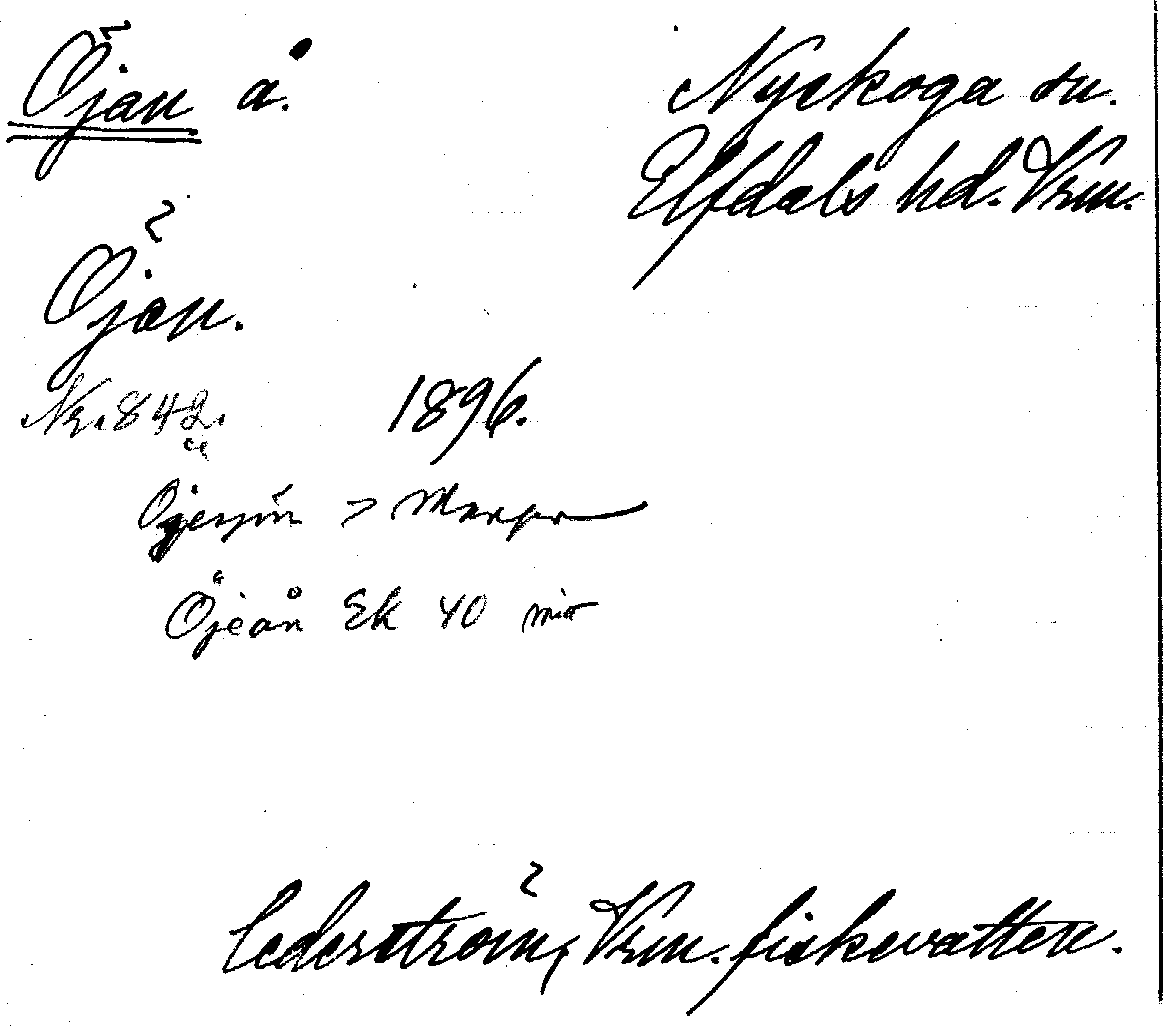 Öjan å. Nyskoga sn.
Elfdals hd. Vrm.
Öjan.
Nr. 842. 1896.
Öjesjön >
Öjeån Ek 40
Cederström, Vrm. fiskevatten.